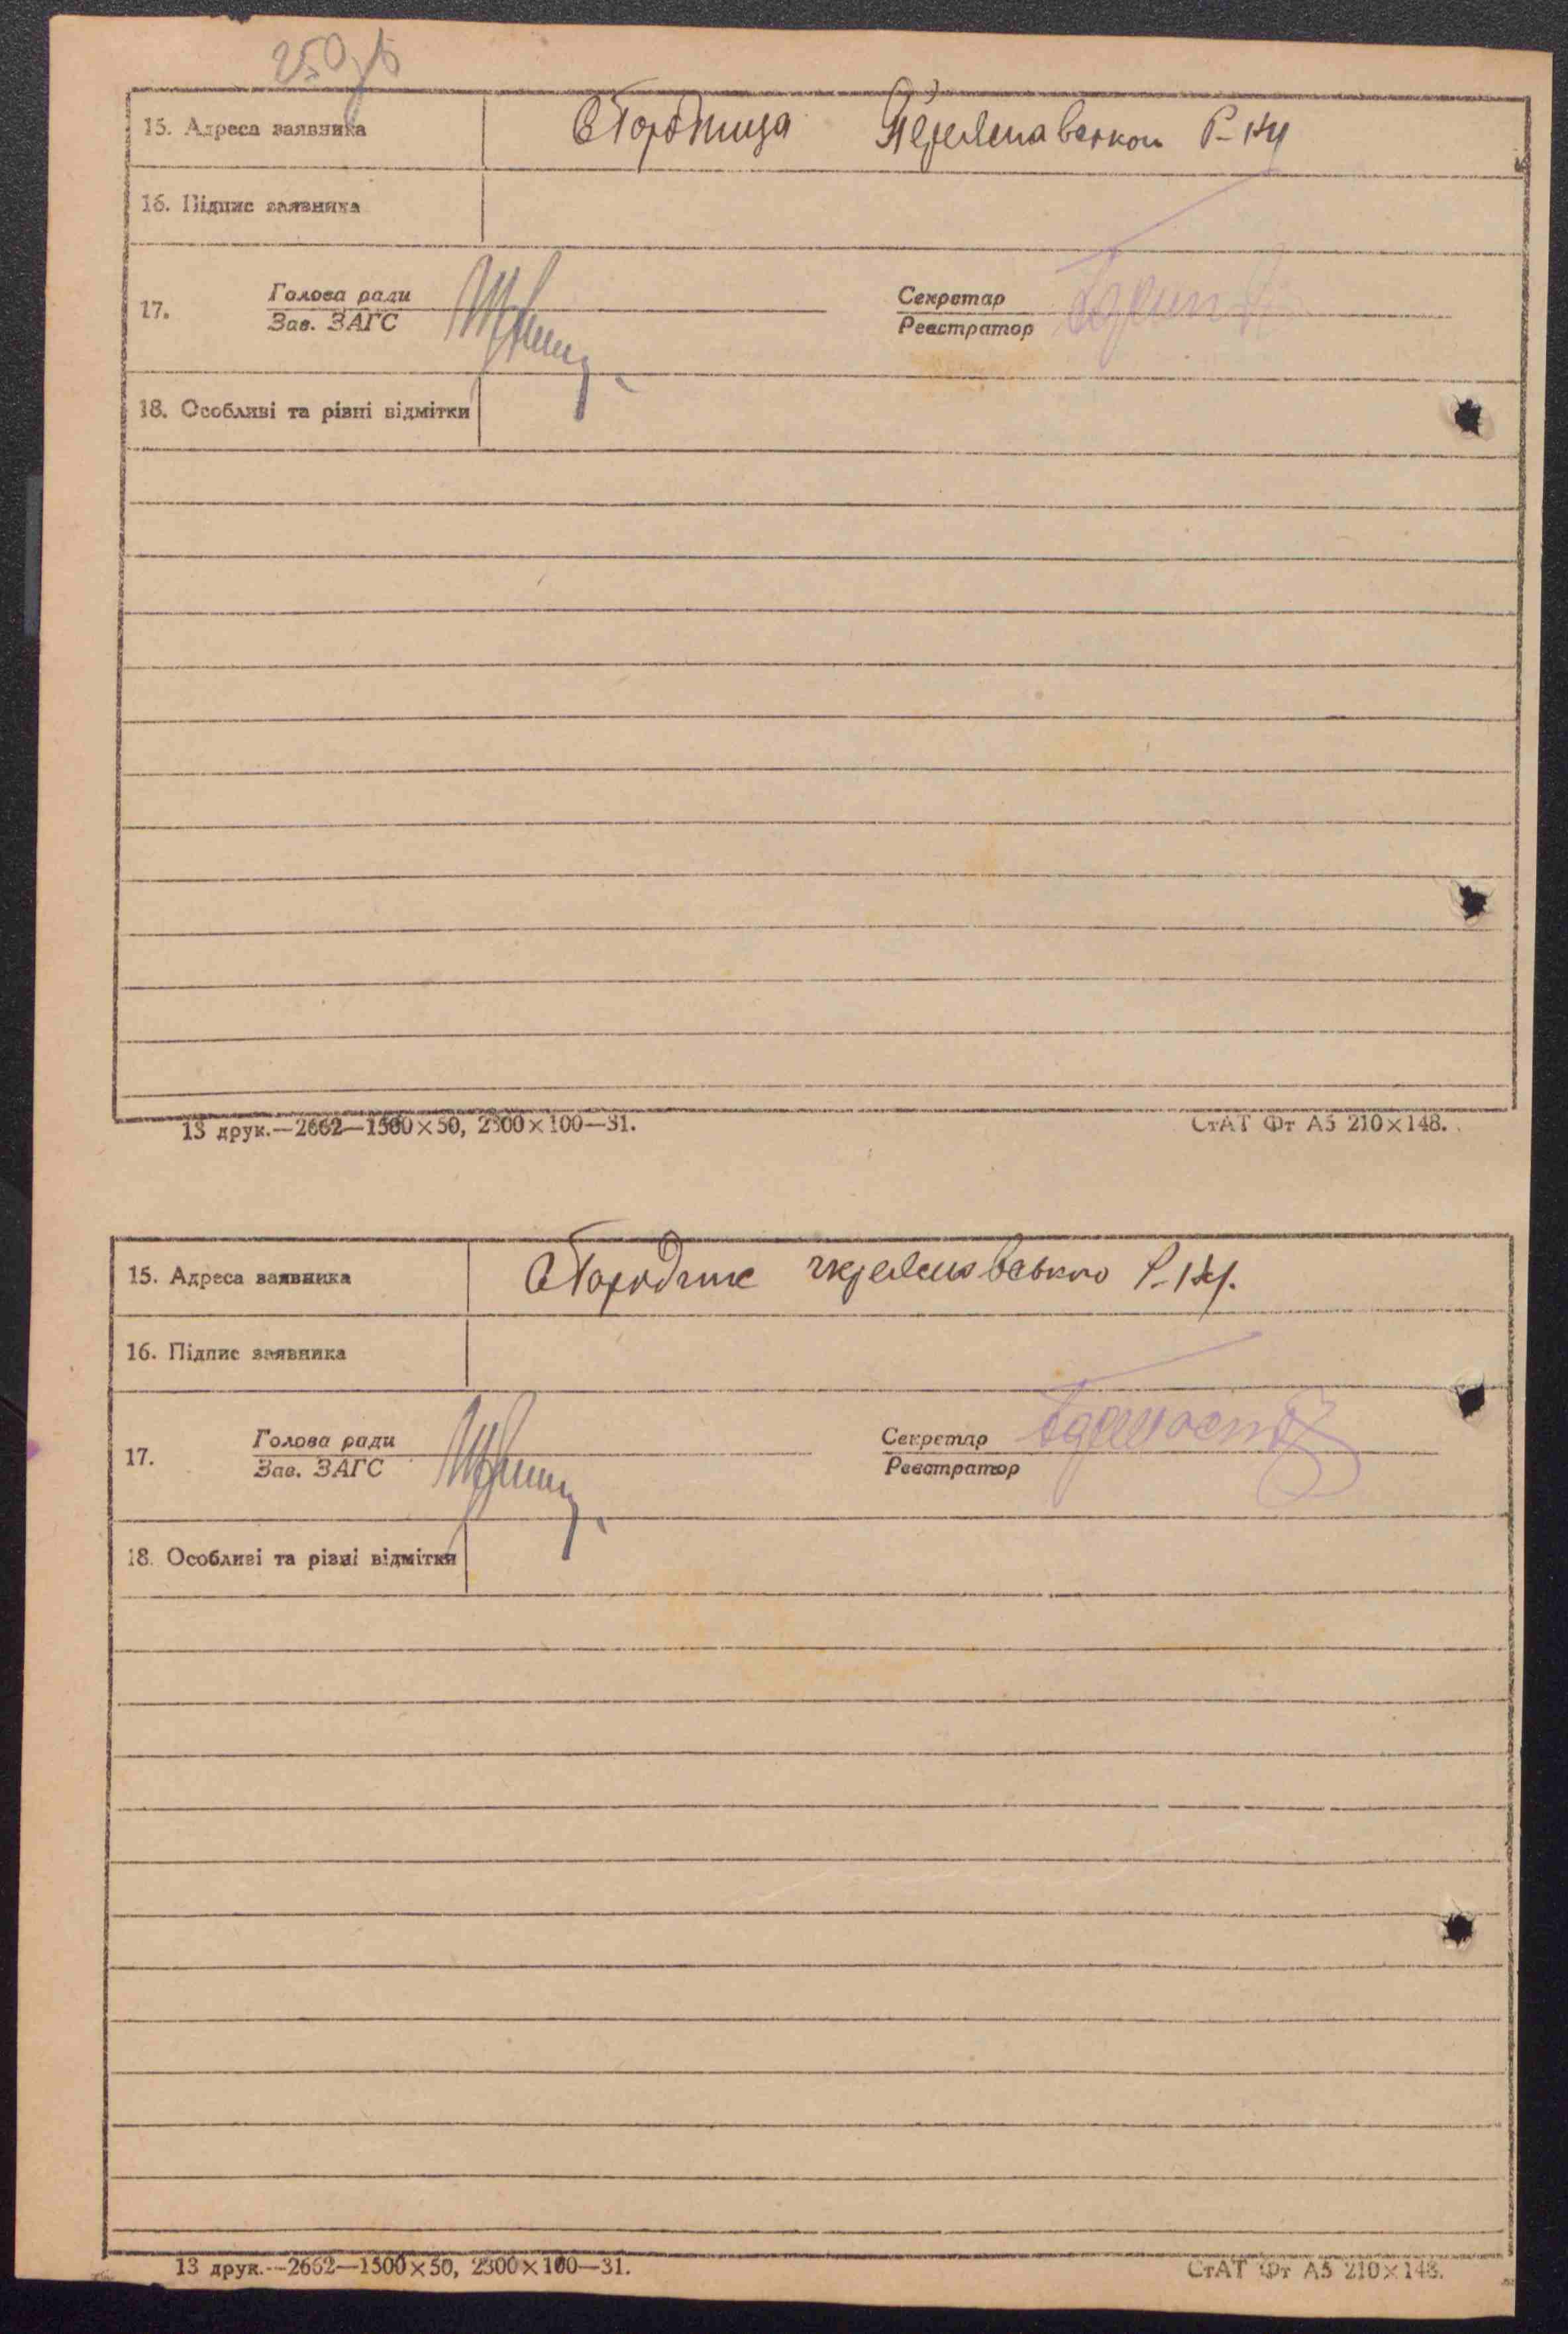 250 зв
15. Адреса заявника Переяславськом Р-ну
16. Підпис заявника
17. Голова ради
Зав. ЗАГС
Секретар
Реєстратор
18. Особливі та різні відмітки
13 друк.—2662—1500×50, 2300×100—31. СтАТ Фт А5 210×148.
15. Адреса заявника Р-ну.
16. Підпис заявника
17. Голова ради
Зав. ЗАГС
Секретар
Реєстратор
18. Особливі та різні відмітки
13 друк.—2662—1500×50, 2300×100—31. СтАТ Фт А5 210×148.